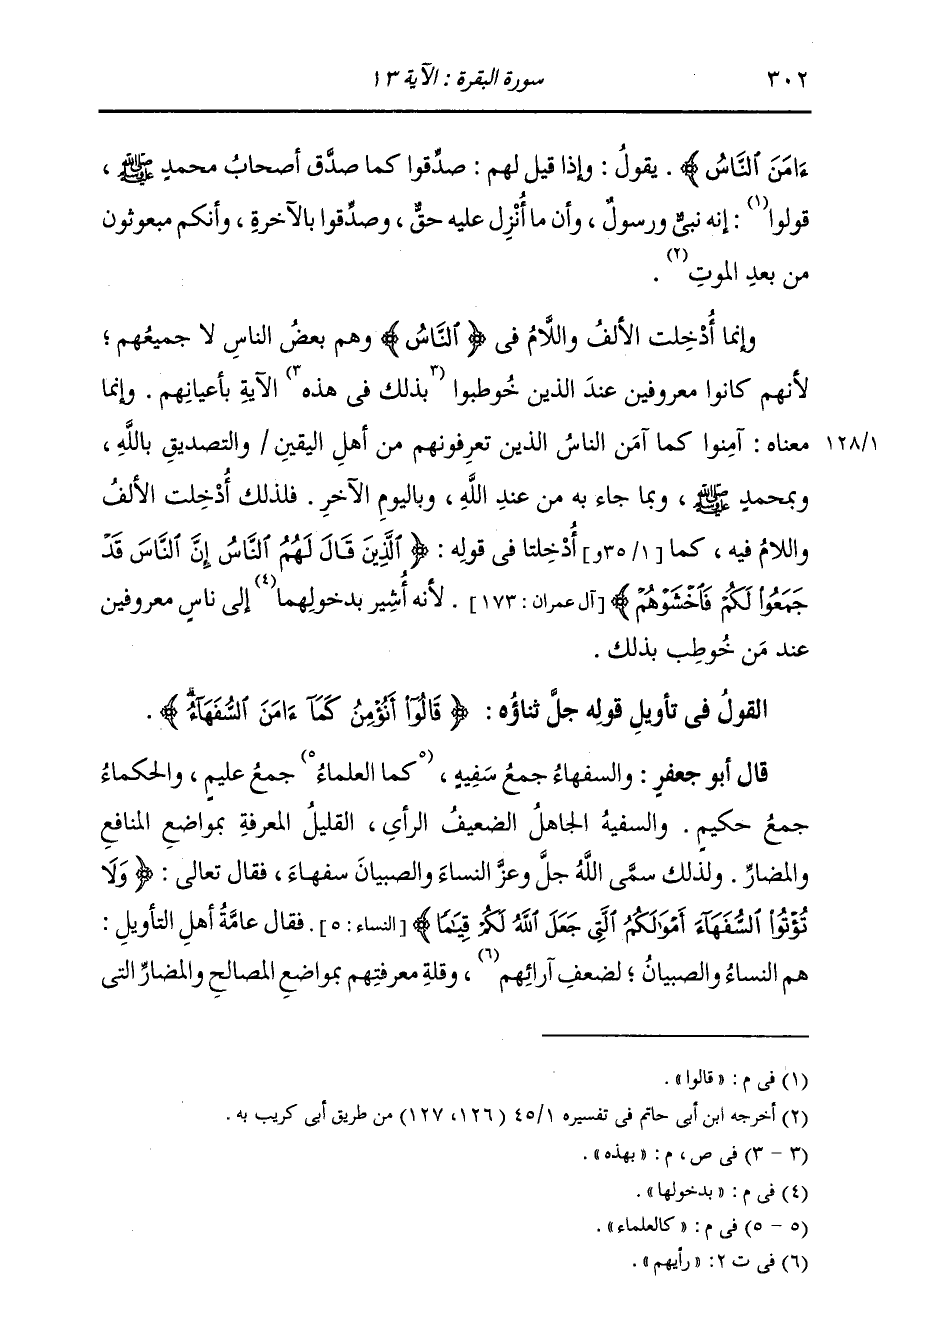 ٣٠٢ سورة البقرة : الآية ١٣
ءَامَنَ ٱلنَّاسُ ﴾ . يقولُ : وإذا قيل لهم : صدِّقوا كما صدَّق أصحابُ محمدٍ ﷺ ،
قولوا(١) : إنه نبيٌّ ورسولٌ ، وأن ما أُنْزِل عليه حقٌّ ، وصدِّقوا بالآخرةِ ، وأنكم مبعوثون
من بعدِ الموتِ(٢) .
وإنما أُدْخِلت الألفُ واللَّامُ فى ﴿ ٱلنَّاسُ ﴾ وهم بعضُ الناسِ لا جميعُهم ؛
لأنهم كانوا معروفين عندَ الذين خُوطبوا (٣بذلك فى هذه٣) الآيةِ بأعيانِهم . وإنما
معناه : آمِنوا كما آمَن الناسُ الذين تعرفونهم من أهلِ اليقينِ / والتصديقِ باللَّهِ ، ١٢٨/١
وبمحمدٍ ﷺ ، وبما جاء به من عندِ اللَّهِ ، وباليومِ الآخرِ . فلذلك أُدْخِلت الألفُ
واللامُ فيه ، كما [٣٥/١و] أُدْخِلتا فى قوله : ﴿ ٱلَّذِينَ قَالَ لَهُمُ ٱلنَّاسُ إِنَّ ٱلنَّاسَ قَدْ
جَمَعُوا۟ لَكُمْ فَٱخْشَوْهُمْ ﴾ [آل عمران : ١٧٣] . لأنه أُشِير بدخولِهما(٤) إلى ناسٍ معروفين
عند مَن خُوطِب بذلك .
القولُ فى تأويلِ قولِه جلَّ ثناؤُه : ﴿ قَالُوٓا۟ أَنُؤْمِنُ كَمَآ ءَامَنَ ٱلسُّفَهَآءُۗ ﴾ .
قال أبو جعفرٍ : والسفهاءُ جمعُ سَفِيهٍ ، (٥كما العلماءُ٥) جمعُ عليمٍ ، والحكماءُ
جمعُ حكيمٍ . والسفيهُ الجاهلُ الضعيفُ الرأيِ ، القليلُ المعرفةِ بمواضعِ المنافعِ
والمضارِّ . ولذلك سمَّى اللَّهُ جلَّ وعزَّ النساءَ والصبيانَ سفهاءَ ، فقال تعالى : ﴿ وَلَا
تُؤْتُوا۟ ٱلسُّفَهَآءَ أَمْوَٰلَكُمُ ٱلَّتِى جَعَلَ ٱللَّهُ لَكُمْ قِيَٰمًا ﴾ [النساء : ٥] . فقال عامَّةُ أهلِ التأويلِ :
هم النساءُ والصبيانُ ؛ لضعفِ آرائِهم(٦) ، وقلةِ معرفتِهم بمواضعِ المصالحِ والمضارِّ التى
(١) فى م : « قالوا » .
(٢) أخرجه ابن أبى حاتم فى تفسيره ٤٥/١ (١٢٦، ١٢٧) من طريق أبى كريب به .
(٣ - ٣) فى ص ، م : « بهذه » .
(٤) فى م : « بدخولها » .
(٥ - ٥) فى م : « كالعلماء » .
(٦) فى ت ٢ : « رأيهم » .